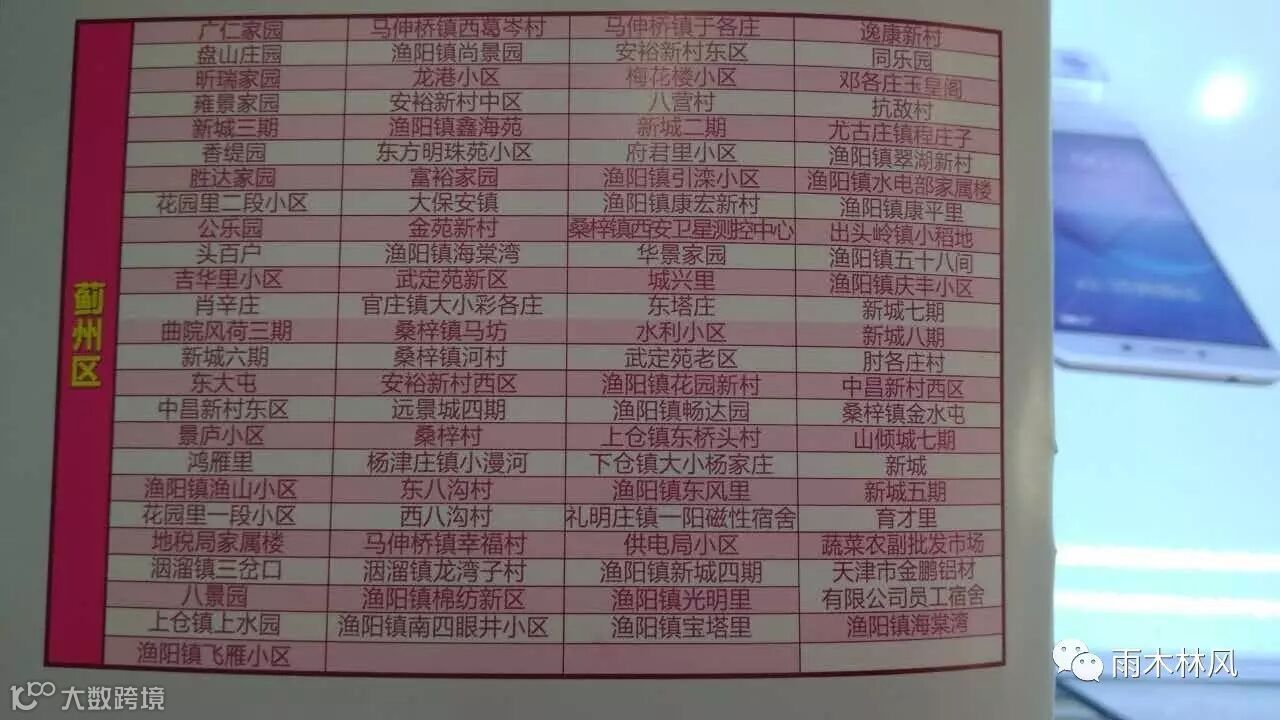 蓟州区
广仁家园 马伸桥镇西葛岑村 马伸桥镇于各庄 逸康新村
盘山庄园 渔阳镇尚景园 安裕新村东区 同乐园
昕瑞家园 龙港小区 梅花楼小区 邓各庄玉皇阁
雍景家园 安裕新村中区 八营村 抗敌村
新城三期 渔阳镇鑫海苑 新城二期 尤古庄镇程庄子
香缇园 东方明珠苑小区 府君里小区 渔阳镇翠湖新村
胜达家园 富裕家园 渔阳镇引滦小区 渔阳镇水电部家属楼
花园里二段小区 大保安镇 渔阳镇康宏新村 渔阳镇康平里
公乐园 金苑新村 桑梓镇西安卫星测控中心 出头岭镇小稻地
头百户 渔阳镇海棠湾 华景家园 渔阳镇五十八间
吉华里小区 武定苑新区 城兴里 渔阳镇庆丰小区
肖辛庄 官庄镇大小彩各庄 东塔庄 新城七期
曲院风荷三期 桑梓镇马坊 水利小区 新城八期
新城六期 桑梓镇河村 武定苑老区 肘各庄村
东大屯 安裕新村西区 渔阳镇花园新村 中昌新村西区
中昌新村东区 远景城四期 渔阳镇畅达园 桑梓镇金水屯
景庐小区 桑梓村 上仓镇东桥头村 山倾城七期
鸿雁里 杨津庄镇小漫河 下仓镇大小杨家庄 新城
渔阳镇渔山小区 东八沟村 渔阳镇东风里 新城五期
花园里一段小区 西八沟村 礼明庄镇一阳磁性宿舍 育才里
地税局家属楼 马伸桥镇幸福村 供电局小区 蔬菜农副批发市场
洇溜镇三岔口 洇溜镇龙湾子村 渔阳镇新城四期 天津市金鹏铝材
八景园 渔阳镇棉纺新区 渔阳镇光明里 有限公司员工宿舍
上仓镇上水园 渔阳镇南四眼井小区 渔阳镇宝塔里 渔阳镇海棠湾
渔阳镇飞雁小区
雨木林风
大数跨境